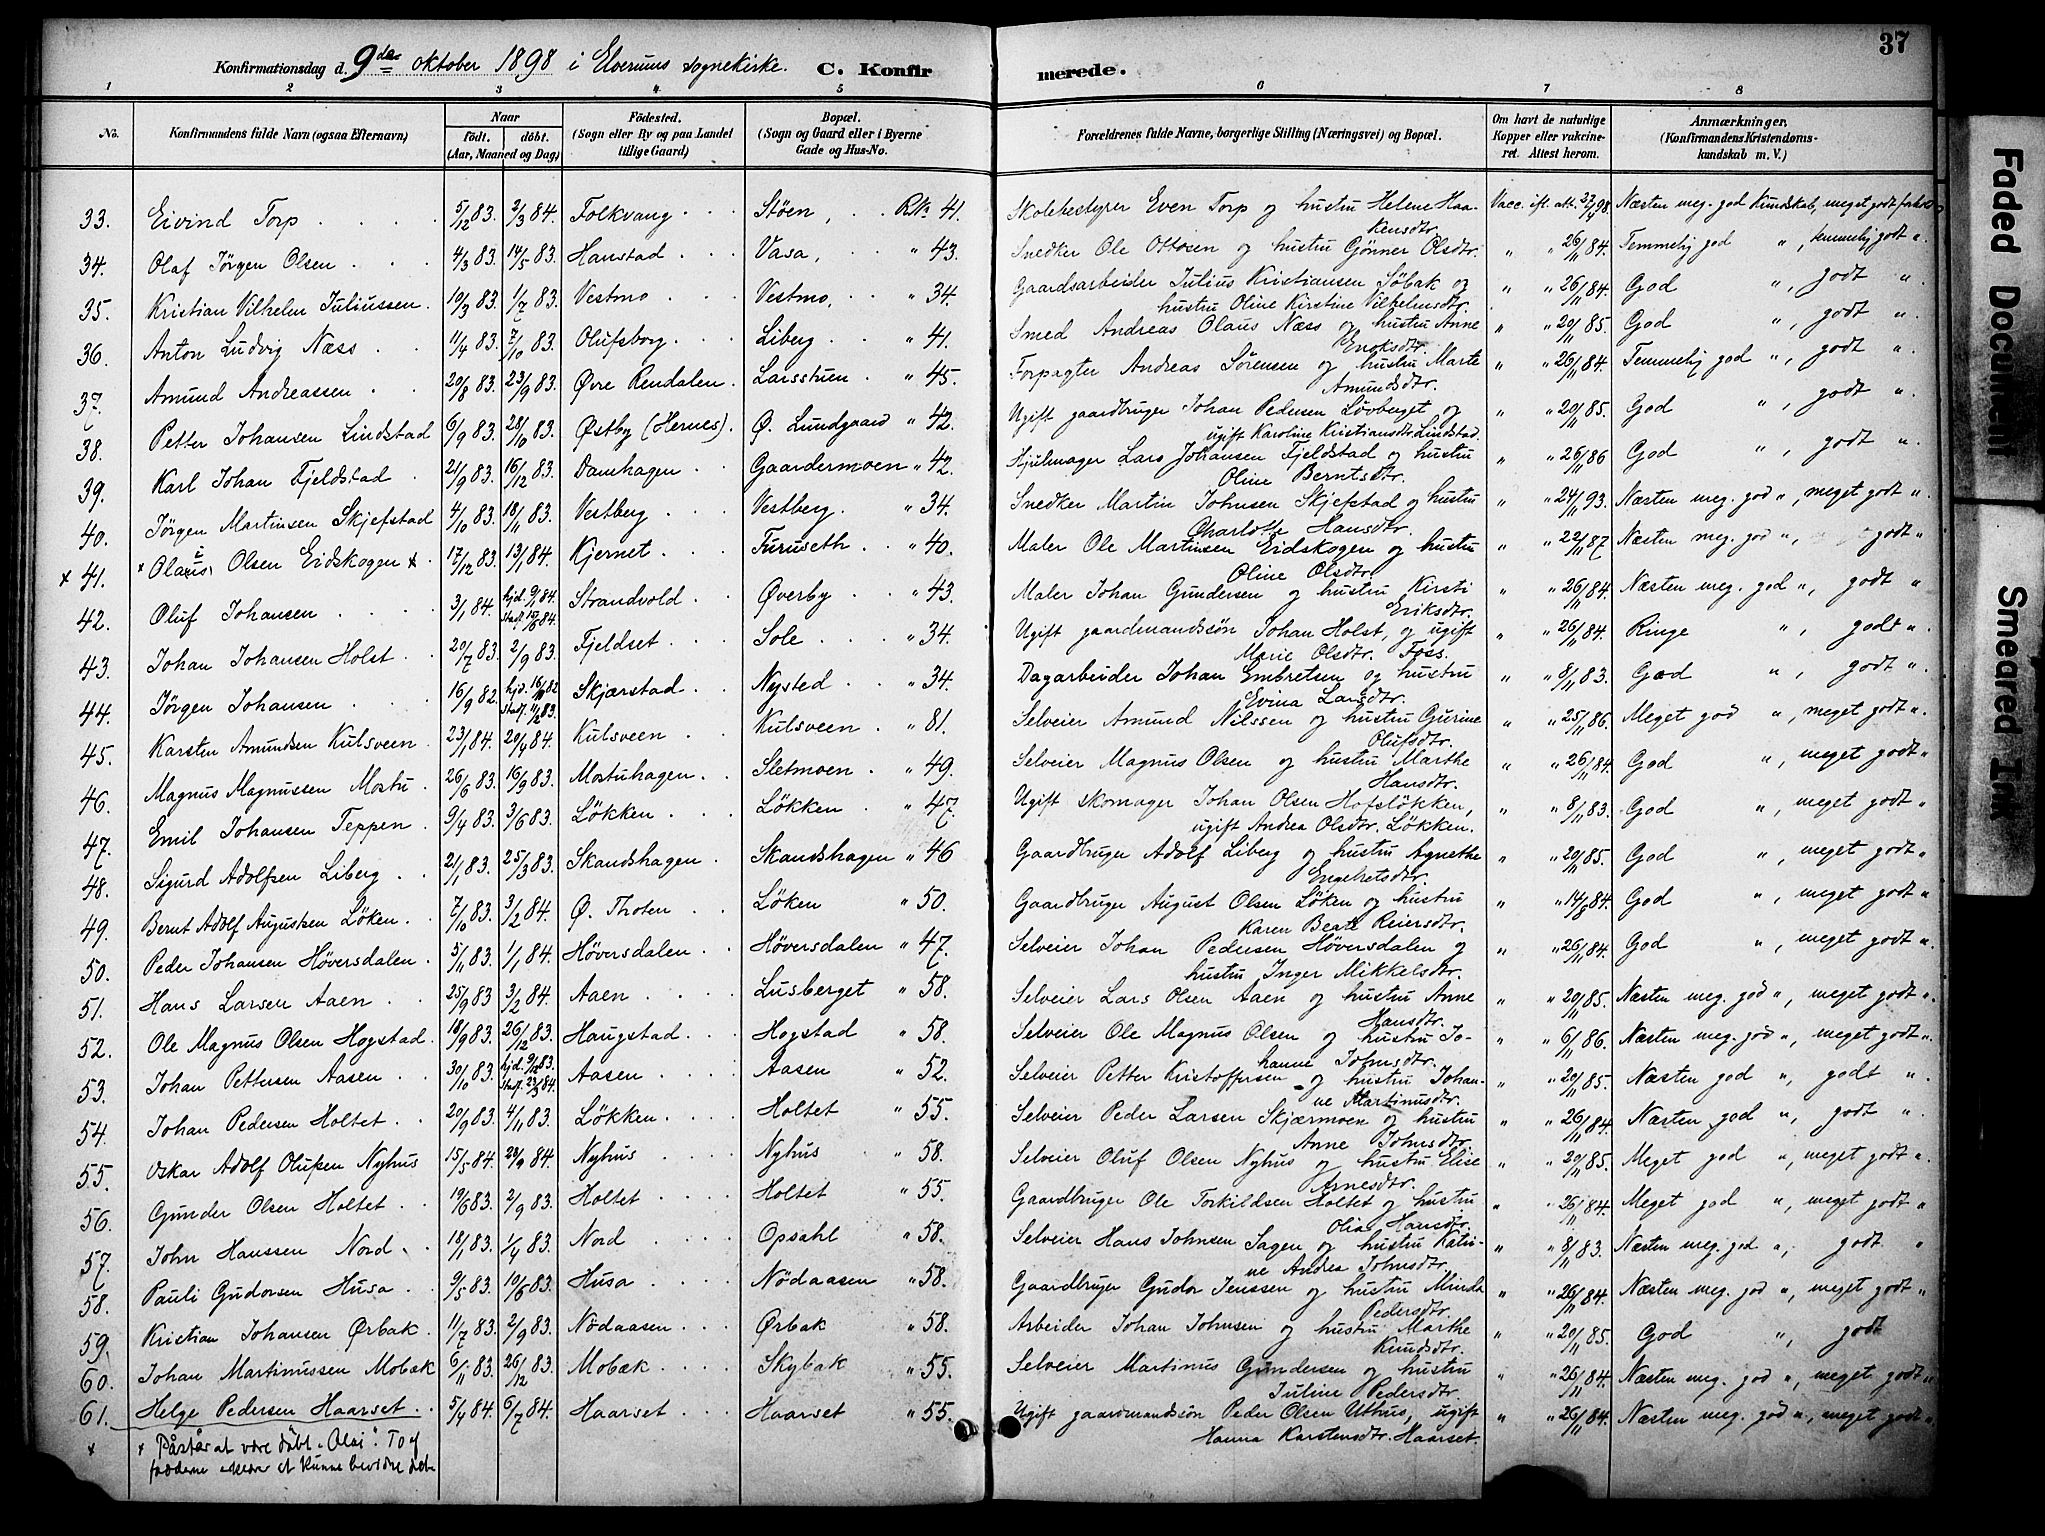 37
Konfirmationsdag d. 9de oktober 1898 i Elverums sognekirke. C. Konfirmerede.
1 2 3 4 5 6 7 8
No. Konfirmandens fulde Navn (ogsaa Efternavn) Naar födt. döbt. (Aar, Maaned og Dag) Födested. (Sogn eller By og paa Landet tillige Gaard) Bopæl. (Sogn og Gaard eller i Byerne Gade og Hus-No. Forældrenes fulde Navne, borgerlige Stilling (Næringsvei) og Bopæl. Om havt de naturlige Kopper eller vakcineret. Attest herom. Anmærkninger, (Konfirmandens Kristendomskundskab m. V.)
33. Eivind Torp 5/12 83. 2/3 84. Folkvang Stöen, Rk. 41. Skolebestyrer Even Torp og hustru Helene Haakensdtr. Vacc. ifl. att. 27/4 98. Næsten meg. god Kundskab, meget godt
34. Olaf Jörgen Olsen 4/3 83. 14/5 83. Hanstad Vasa, " 43. Snedker Ole Ottosen og hustru Gjönner Olsdtr. " " 26/11 84. Temmelig god ", temmelig godt ".
35. Kristian Vilhelm Juliussen 10/3 83. 1/7 83. Vestmo Vestmo, " 34. Gaardsarbeider Julius Kristiansen Söbak og hustru Oline Kirstine Vilhelmsdtr. " " 26/11 84. God ", godt "
36. Anton Ludvig Næss 11/4 83. 7/10 83. Olufsborg Liberg " 41. Smed Andreas Olaus Næss og hustru Anne Enoksdtr. " " 20/11 85. God ", godt "
37. Amund Andreassen 20/8 83. 23/9 83. Øvre Rendalen. Larsstuen " 45. Forpagter Andreas Sörensen og hustru Marte Amundsdtr. " " 26/11 84. Temmelig god ", godt "
38. Petter Johansen Lindstad 6/9 83. 28/10 83. Østby (Hernes). Ø. Lundgaard " 42. Ugift gaardbruger Johan Pedersen Lövberget og ugift Karoline Kristiansdtr. Lindstad. " " 20/11 85. God ", godt ".
39. Karl Johan Fjeldstad 21/9 83. 16/12 83. Damhagen Gaardermoen " 42. Hjulmager Lars Johansen Fjeldstad og hustru Oline Berntsdtr. " " 26/11 86 God ", godt ".
40. Jörgen Martinsen Skjefstad 4/10 83. 18/11 83. Vestberg Vestberg. " 34. Snedker Martin Johnsen Skjefstad og hustru Charlotte Hansdtr. " " 24/11 93. Næsten meg. god ", meget godt ".
x 41. x Olaus i Olsen Eidskogen x 17/12 83. 13/1 84. Kjernet Furuseth " 40. Maler Ole Martinsen Eidskogen og hustru Oline Olsdtr. " " 22/11 87 Næsten meg. god ", godt "
42. Oluf Johansen 3/1 84. hjd. 9/1 84. Strandvold Øverby " 43. Maler Johan Gundersen og hustru Kirsti Eriksdtr. " " 26/11 84. Næsten meg. god ", godt "
43. Johan Johansen Holst 20/7 83. 2/9 83. Fjeldset Sole " 34. Ugift gaardmandssön Johan Holst, og ugift Marie Olsdtr. Foss. " " 26/11 84. Ringe ", godt ".
44. Jörgen Johansen 16/9 82. Skjærstad Nysted " 34. Dagarbeider Johan Embretsen og hustru Evina Larsdtr. " " 8/11 83. God ", godt ".
45. Karsten Amundsen Kulsveen 23/1 84. 20/4 84. Kulsveen Kulsveen " 81. Selveier Amund Nilssen og hustru Gurine Olufsdtr. " " 25/11 86. Meget god ", meget godt ".
46. Magnus Magnussen Mostu 26/6 83. 16/9 83. Mostuhagen Sletmoen " 49. Selveier Magnus Olsen og hustru Marthe Hansdtr. " " 26/11 84. God ", meget godt "
47. Emil Johansen Teppen 9/4 83. 3/6 83. Lökken Lökken " 47. Ugift skomager Johan Olsen Hofslökken, ugift Andrea Olsdtr. Lökken. " " 8/11 83. God ", meget godt "
48. Sigurd Adolfsen Liberg 21/1 83. 25/3 83. Skandshagen Skandshagen " 46 Gaardbruger Adolf Liberg og hustru Agnethe Engebretsdtr. " " 20/11 85. God ", meget godt "
49. Bernt Adolf Augustsen Löken. 7/10 83. 3/2 84. Ø. Thoten Löken " 50. Gaardbruger August Olsen Löken og hustru Karen Beate Reiersdtr. " " 14/8 84. God ", meget godt "
50. Peder Johansen Höversdalen. 5/11 83. 1/1 84. Höversdalen Höversdalen " 47. Selveier Johan Pedersen Höversdalen og hustru Inger Mikkelsdtr. " " 26/11 84. God ", meget godt ".
51. Hans Larsen Aaen 25/9 83 3/2 84. Aaen Lusberget " 58. Selveier Lars Olsen Aaen og hustru Anne Hansdtr. " " 20/11 85. Næsten meg. god ", meget godt ".
52. Ole Magnus Olsen Hogstad. 18/9 83. 26/12 83. Haugstad Hogstad " 58. Selveier Ole Magnus Olsen og hustru Johanne Johnsdtr. " " 6/11 86. Næsten meg. god ", meget godt ".
53. Johan Pettersen Aasen 30/10 83. Aasen Aasen " 52. Selveier Petter Kristoffersen og hustru Johanne Martinusdtr. " " 20/11 85. Næsten god ", godt ".
54. Johan Pedersen Holtet 20/9 83. 4/11 83. Lökken Holtet " 55. Selveier Peder Larsen Skjærmoen og hustru Anne Johnsdtr. " " 26/11 84. Næsten god ", godt ".
55. Oskar Adolf Olufsen Nyhus 15/5 84. 84. Nyhus Nyhus " 58. Selveier Oluf Olsen Nyhus og hustru Elise Arnesdtr. " " 20/11 85. Meget god ", meget godt ".
56. Gunder Olsen Holtet 19/6 83. 2/9 83. Holtet Holtet " 55. Gaardbruger Ole Torkildsen Holtet og hustru Olia Hansdtr. " " 26/11 84. Meget god ", meget godt "
57. John Hanssen Nord 18/1 83. 1/4 83. Nord Opsahl " 58. Selveier Hans Johnsen Sagen og hustru Katrine Andrea Johnsdtr. " " 8/11 83. Næsten meg. god ", godt "
58. Pauli Gudorsen Husa 9/5 83. 10/6 83. Husa Nödaasen " 58. Gaardbruger Gudor Jenssen og hustru Minda Pedersdtr. " " 26/11 84. Næsten meg. god ", meget godt "
59. Kristian Johansen Ørbak. 11/7 83. 2/9 83. Nödaasen Ørbak " 58. Arbeider Johan Johnsen og hustru Marthe Knudsdtr. " " 20/11 85. God ", godt
60. Johan Martinussen Mobæk 6/11 83. 26/12 83. Mobæk Skybak " 55. Selveier Martinus Gundersen og hustru Juline Pedersdtr. " " 26/11 84. Næsten meg. god ", meget godt "
61. Helge Pedersen Haarset 5/4 84. 6/7 84. Haarset Haarset " 55. Ugift gaardmandssön Peder Olsen Uthus, ugift Hanna Karstensdtr. Haarset. " " 26/11 84. Næsten meg. god ", meget godt ".
x x Påstår at være döbt "Olai". To af
fadderne at kunne bevidne det
Faded Document
Smeared Ink